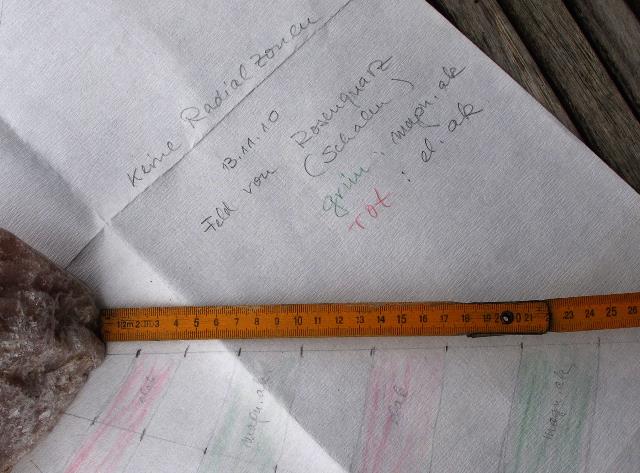 Keine Radialzonen
13.11.10
Feld von Rosenquarz
(Schalen)
grün: magn. ak
rot: el. ak
1 2m 2 3 4 5 6 7 8 9 10 11 12 13 14 15 16 17 18 19 2 0 21 23 24 25 26
el.ak magn.ak el.ak magn.ak